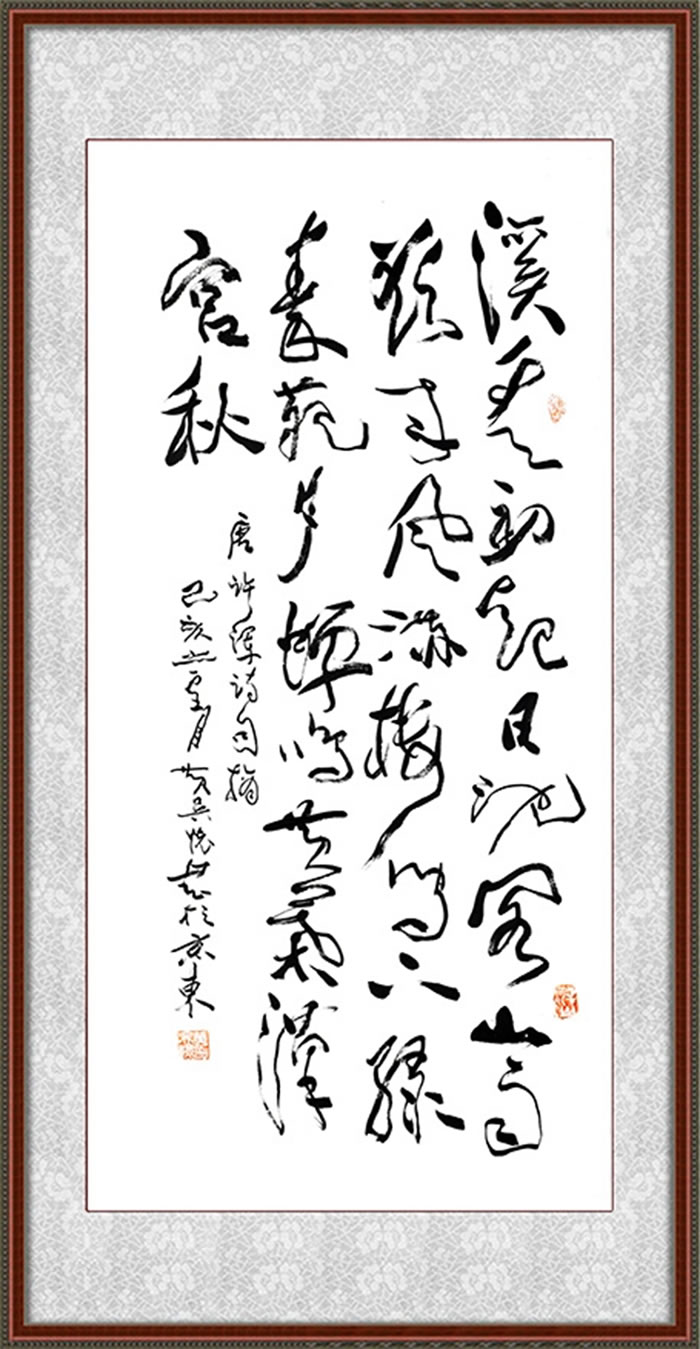 溪雲初起日沈閣山雨
欲来風滿樓鳥下綠
秦苑夕蟬鳴黄葉漢
宮秋
唐許渾詩句摘
己亥 月 吴懷 於京東